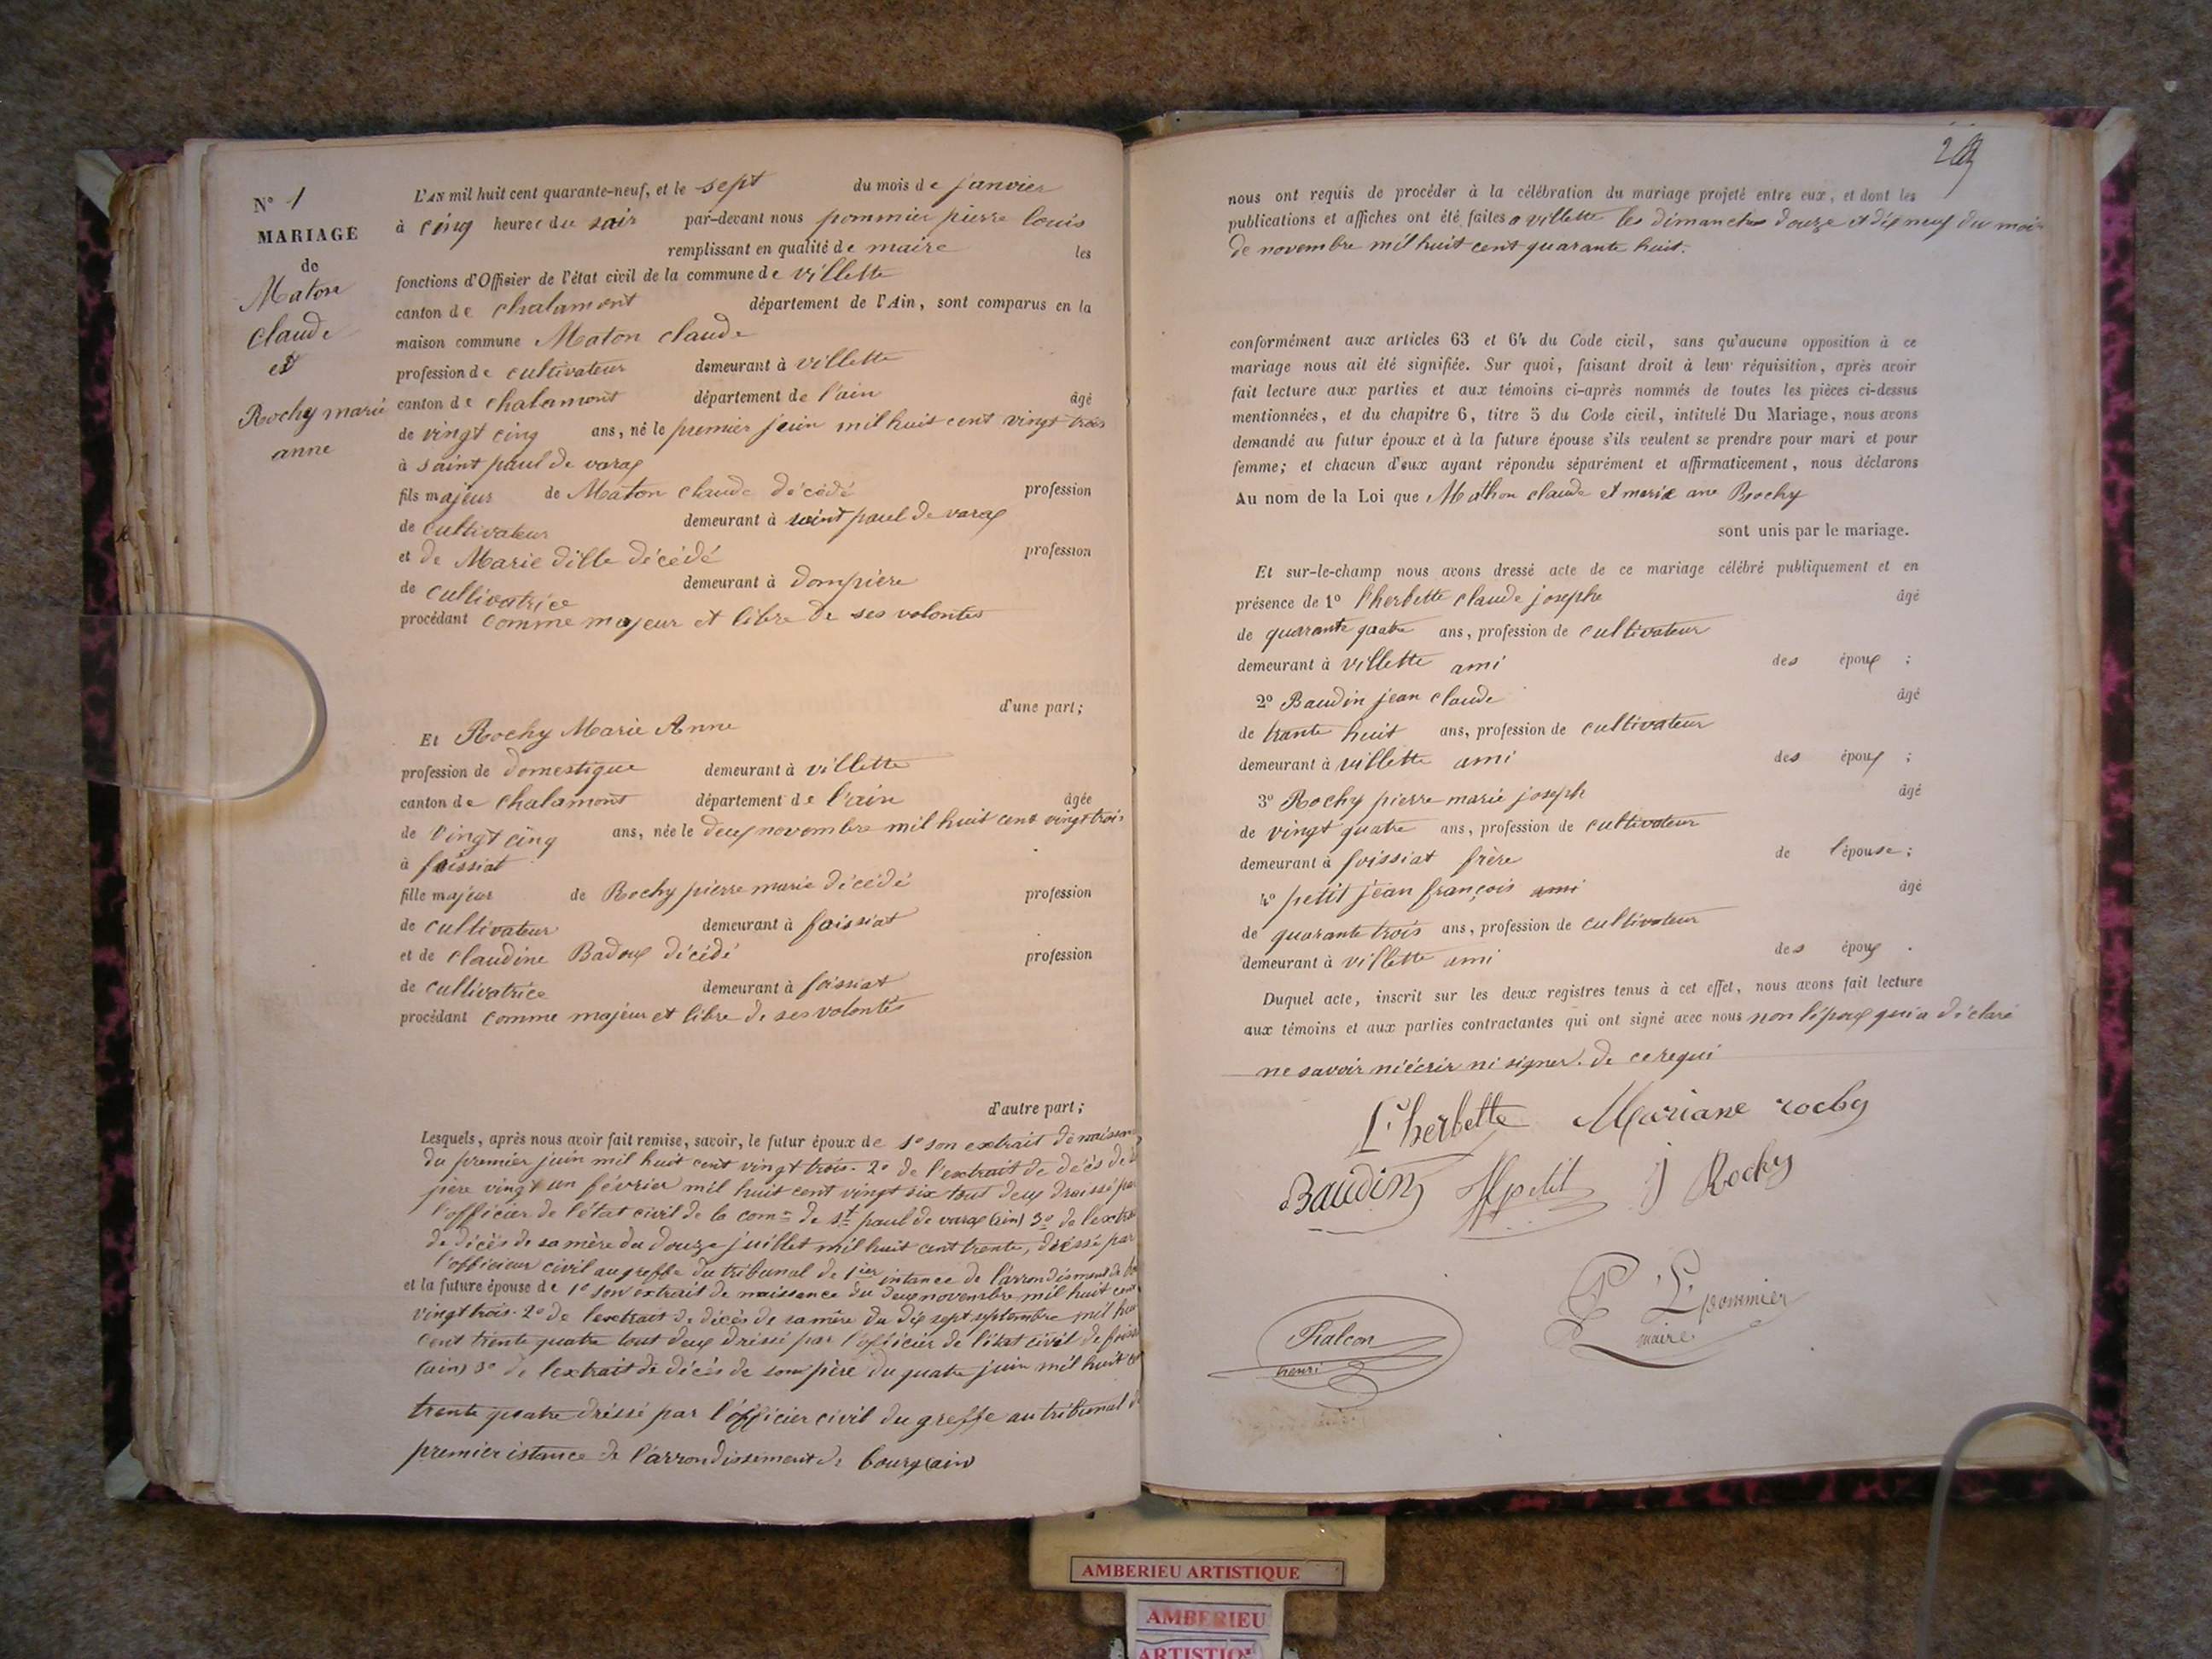 N° 1
MARIAGE
de
Maton
claude
et
Rochy marie
anne
L'AN mil huit cent quarante-neuf, et le sept du mois de janvier
à cinq heures du soir par-devant nous pommier pierre louis
remplissant en qualité de maire les
fonctions d'Officier de l'état civil de la commune de villette
canton de chalamont département de l'Ain, sont comparus en la
maison commune Maton claude
profession de cultivateur demeurant à villette
canton de chalamont département de l'ain âgé
de vingt cinq ans, né le premier juin mil huit cent vingt trois
à saint paul de varax
fils majeur de Maton claude décédé profession
de cultivateur demeurant à saint paul de varax
et de Marie dille décédé profession
de cultivatrice demeurant à dompiere
procédant comme majeur et libre de ses volontés
d'une part;
Et Rochy Marie Anne
profession de domestique demeurant à villette
canton de chalamont département de l'ain âgée
de vingt cinq ans, née le deux novembre mil huit cent vingt trois
à foissiat
fille majeur de Rochy pierre marie décédé profession
de cultivateur demeurant à foissiat
et de claudine Badoux décédé profession
de cultivatrice demeurant à foissiat
procédant comme majeur et libre de ses volontés
d'autre part;
Lesquels, après nous avoir fait remise, savoir, le futur époux de 1° son extrait de naissan
du premier juin mil huit cent vingt trois. 2° de l'extrait de décès de
père vingt un février mil huit cent vingt six tout deux draissé par
l'officier de l'état civil de la com.ne de st paul de varax (ain) 3° de l'extrai
de décès de sa mère du douze juillet mil huit cent trente, dréssé par
l'officieur civil au greffe du tribunal de 1ier intance de l'arrondisment de
et la future épouse de 1° son extrait de naissance du deux novembre mil huit cent
vingt trois. 2° de l'extrait de décès de sa mère du dix sept septembre mil hui
cent trente quatre tout deux dréssé par l'officier de l'état civil de foiss
(ain) 3° de l'extrait de décès de son père du quatre juin mil huit c
trente quatre dréssé par l'officier civil du greffe au tribunal d
premier istance de l'arrondissement de bourg (ain)
nous ont requis de procéder à la célébration du mariage projeté entre eux, et dont les
publications et affiches ont été faites a villette les dimanches douze et dix neuf du mois
de novembre mil huit cent quarante huit.
conformément aux articles 63 et 64 du Code civil, sans qu'aucune opposition à ce
mariage nous ait été signifiée. Sur quoi, faisant droit à leur réquisition, après avoir
fait lecture aux parties et aux témoins ci-après nommés de toutes les pièces ci-dessus
mentionnées, et du chapitre 6, titre 5 du Code civil, intitulé Du Mariage, nous avons
demandé au futur époux et à la future épouse s'ils veulent se prendre pour mari et pour
femme; et chacun d'eux ayant répondu séparément et affirmativement, nous déclarons
Au nom de la Loi que Mathon claude et marie ane Rochy
sont unis par le mariage.
Et sur-le-champ nous avons dressé acte de ce mariage célébré publiquement et en
présence de 1° l'herbette claude josephe âgé
de quarante quatre ans, profession de cultivateur
demeurant à villette ami des époux ;
2° Baudin jean claude âgé
de trante huit ans, profession de cultivateur
demeurant à villette ami des époux ;
3° Rochy pierre marie joseph âgé
de vingt quatre ans, profession de cultivateur
demeurant à foissiat frère de l'épouse ;
4° petit jean françois ami âgé
de quarante trois ans, profession de cultivateur
demeurant à villette ami des époux .
Duquel acte, inscrit sur les deux registres tenus à cet effet, nous avons fait lecture
aux témoins et aux parties contractantes qui ont signé avec nous non l'époux qui a déclaré
ne savoir ni écrir ni signer. de ce requi
L'herbette Mariane rochy
Baudin petit J Rochy
P L pommier
maire
Falcon
henri
AMBERIEU ARTISTIQUE
AMBERIEU
ARTISTIQ